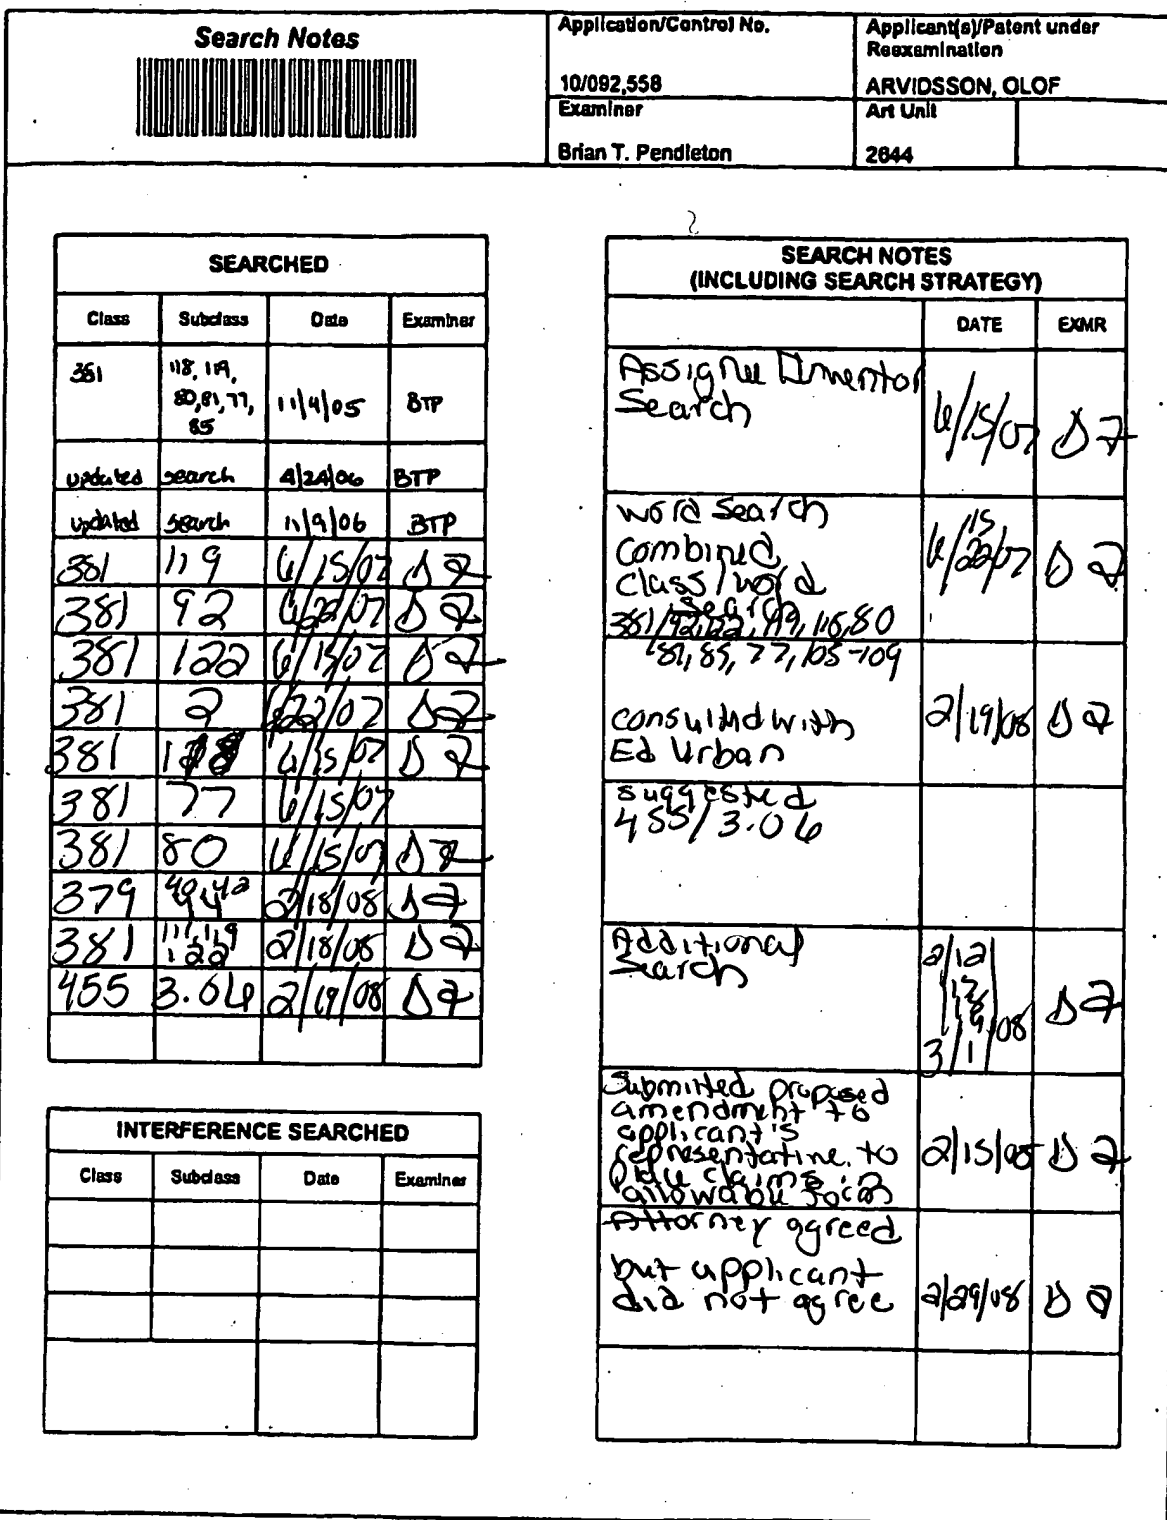 Search Notes
Application/Control No.
10/092,558
Applicant(s)/Patent under
Reexamination
ARVIDSSON, OLOF
Examiner
Brian T. Pendleton
Art Unit
2644
SEARCHED
Class Subclass Date Examiner
381 118, 119, 80,81,77, 85 11/4/05 BTP
updated search 4/24/06 BTP
updated search 11/9/06 BTP
381 119 6/15/07
381 92 6/22/07
381 122 6/15/07
381 2 6/22/07
381 6/15/07
381 77 6/15/07
381 80 6/15/07
379 2/18/08
381 111, 119 122 2/18/08
455 3.06 2/19/08
INTERFERENCE SEARCHED
Class Subclass Date Examiner
SEARCH NOTES
(INCLUDING SEARCH STRATEGY)
DATE EXMR
Assignee Inventor
Search
6/15/07
word search
combined
class/word
search
6/15/22/07
381/92,122,119,118,80
81,85,77,105-109
consulted with
Ed Urban
2/19/08
suggested
455/3.06
Additional
Search
2/12
3/1/08
Submitted proposed
amendment to
applicant's
representative to
place claims in
allowable form
2/15/08
Attorney agreed
but applicant
did not agree
2/29/08